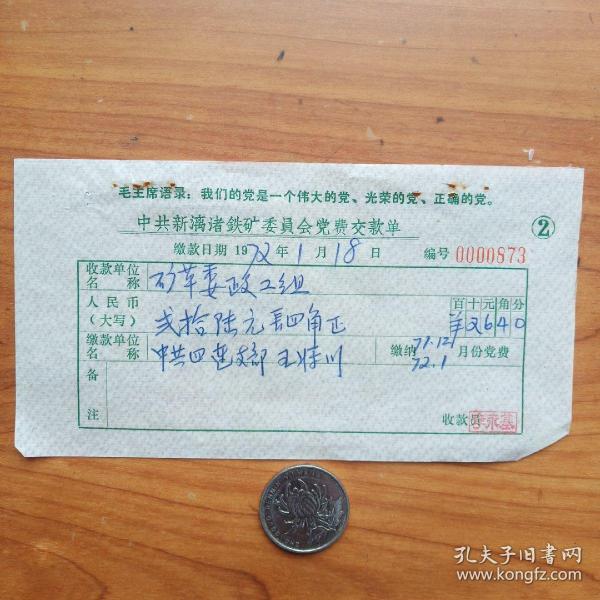 毛主席语录：我们的党是一个伟大的党、光荣的党、正确的党。
中共新漓渚鉄矿委員会党费交款单
②
缴款日期 1972年1月18日 编号 0000873
收款单位名称 矿革委政工组
人民币（大写） 弍拾陆元四角正
百十元角分
2640
缴款单位名称 中共四连支部 王
缴纳 71.12 72.1 月份党费
备注
收款员 永基
孔夫子旧书网
www.kongfz.com